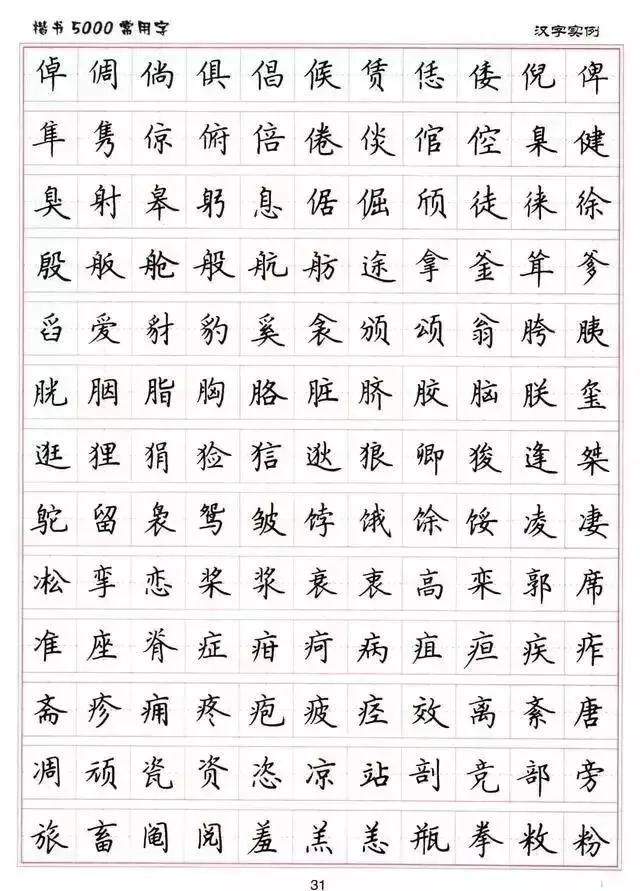 楷书5000常用字 汉字实例
倬 倜 倘 俱 倡 候 赁 恁 倭 倪 俾
隼 隽 倞 俯 倍 倦 倓 倌 倥 臬 健
臭 射 皋 躬 息 倨 倔 颀 徒 徕 徐
殷 舨 舱 般 航 舫 途 拿 釜 耸 爹
舀 爱 豺 豹 奚 衾 颁 颂 翁 胯 胰
胱 胭 脂 胸 胳 脏 脐 胶 脑 朕 玺
逛 狸 狷 猃 狺 逖 狼 卿 狻 逢 桀
鸵 留 袅 鸳 皱 饽 饿 馀 馁 凌 凄
凇 挛 恋 桨 浆 衰 衷 高 栾 郭 席
准 座 脊 症 疳 疴 病 疽 疸 疾 痄
斋 疹 痈 疼 疱 疲 痉 效 离 紊 唐
凋 颃 瓷 资 恣 凉 站 剖 竞 部 旁
旅 畜 阄 阅 羞 羔 恙 瓶 拳 敉 粉
31